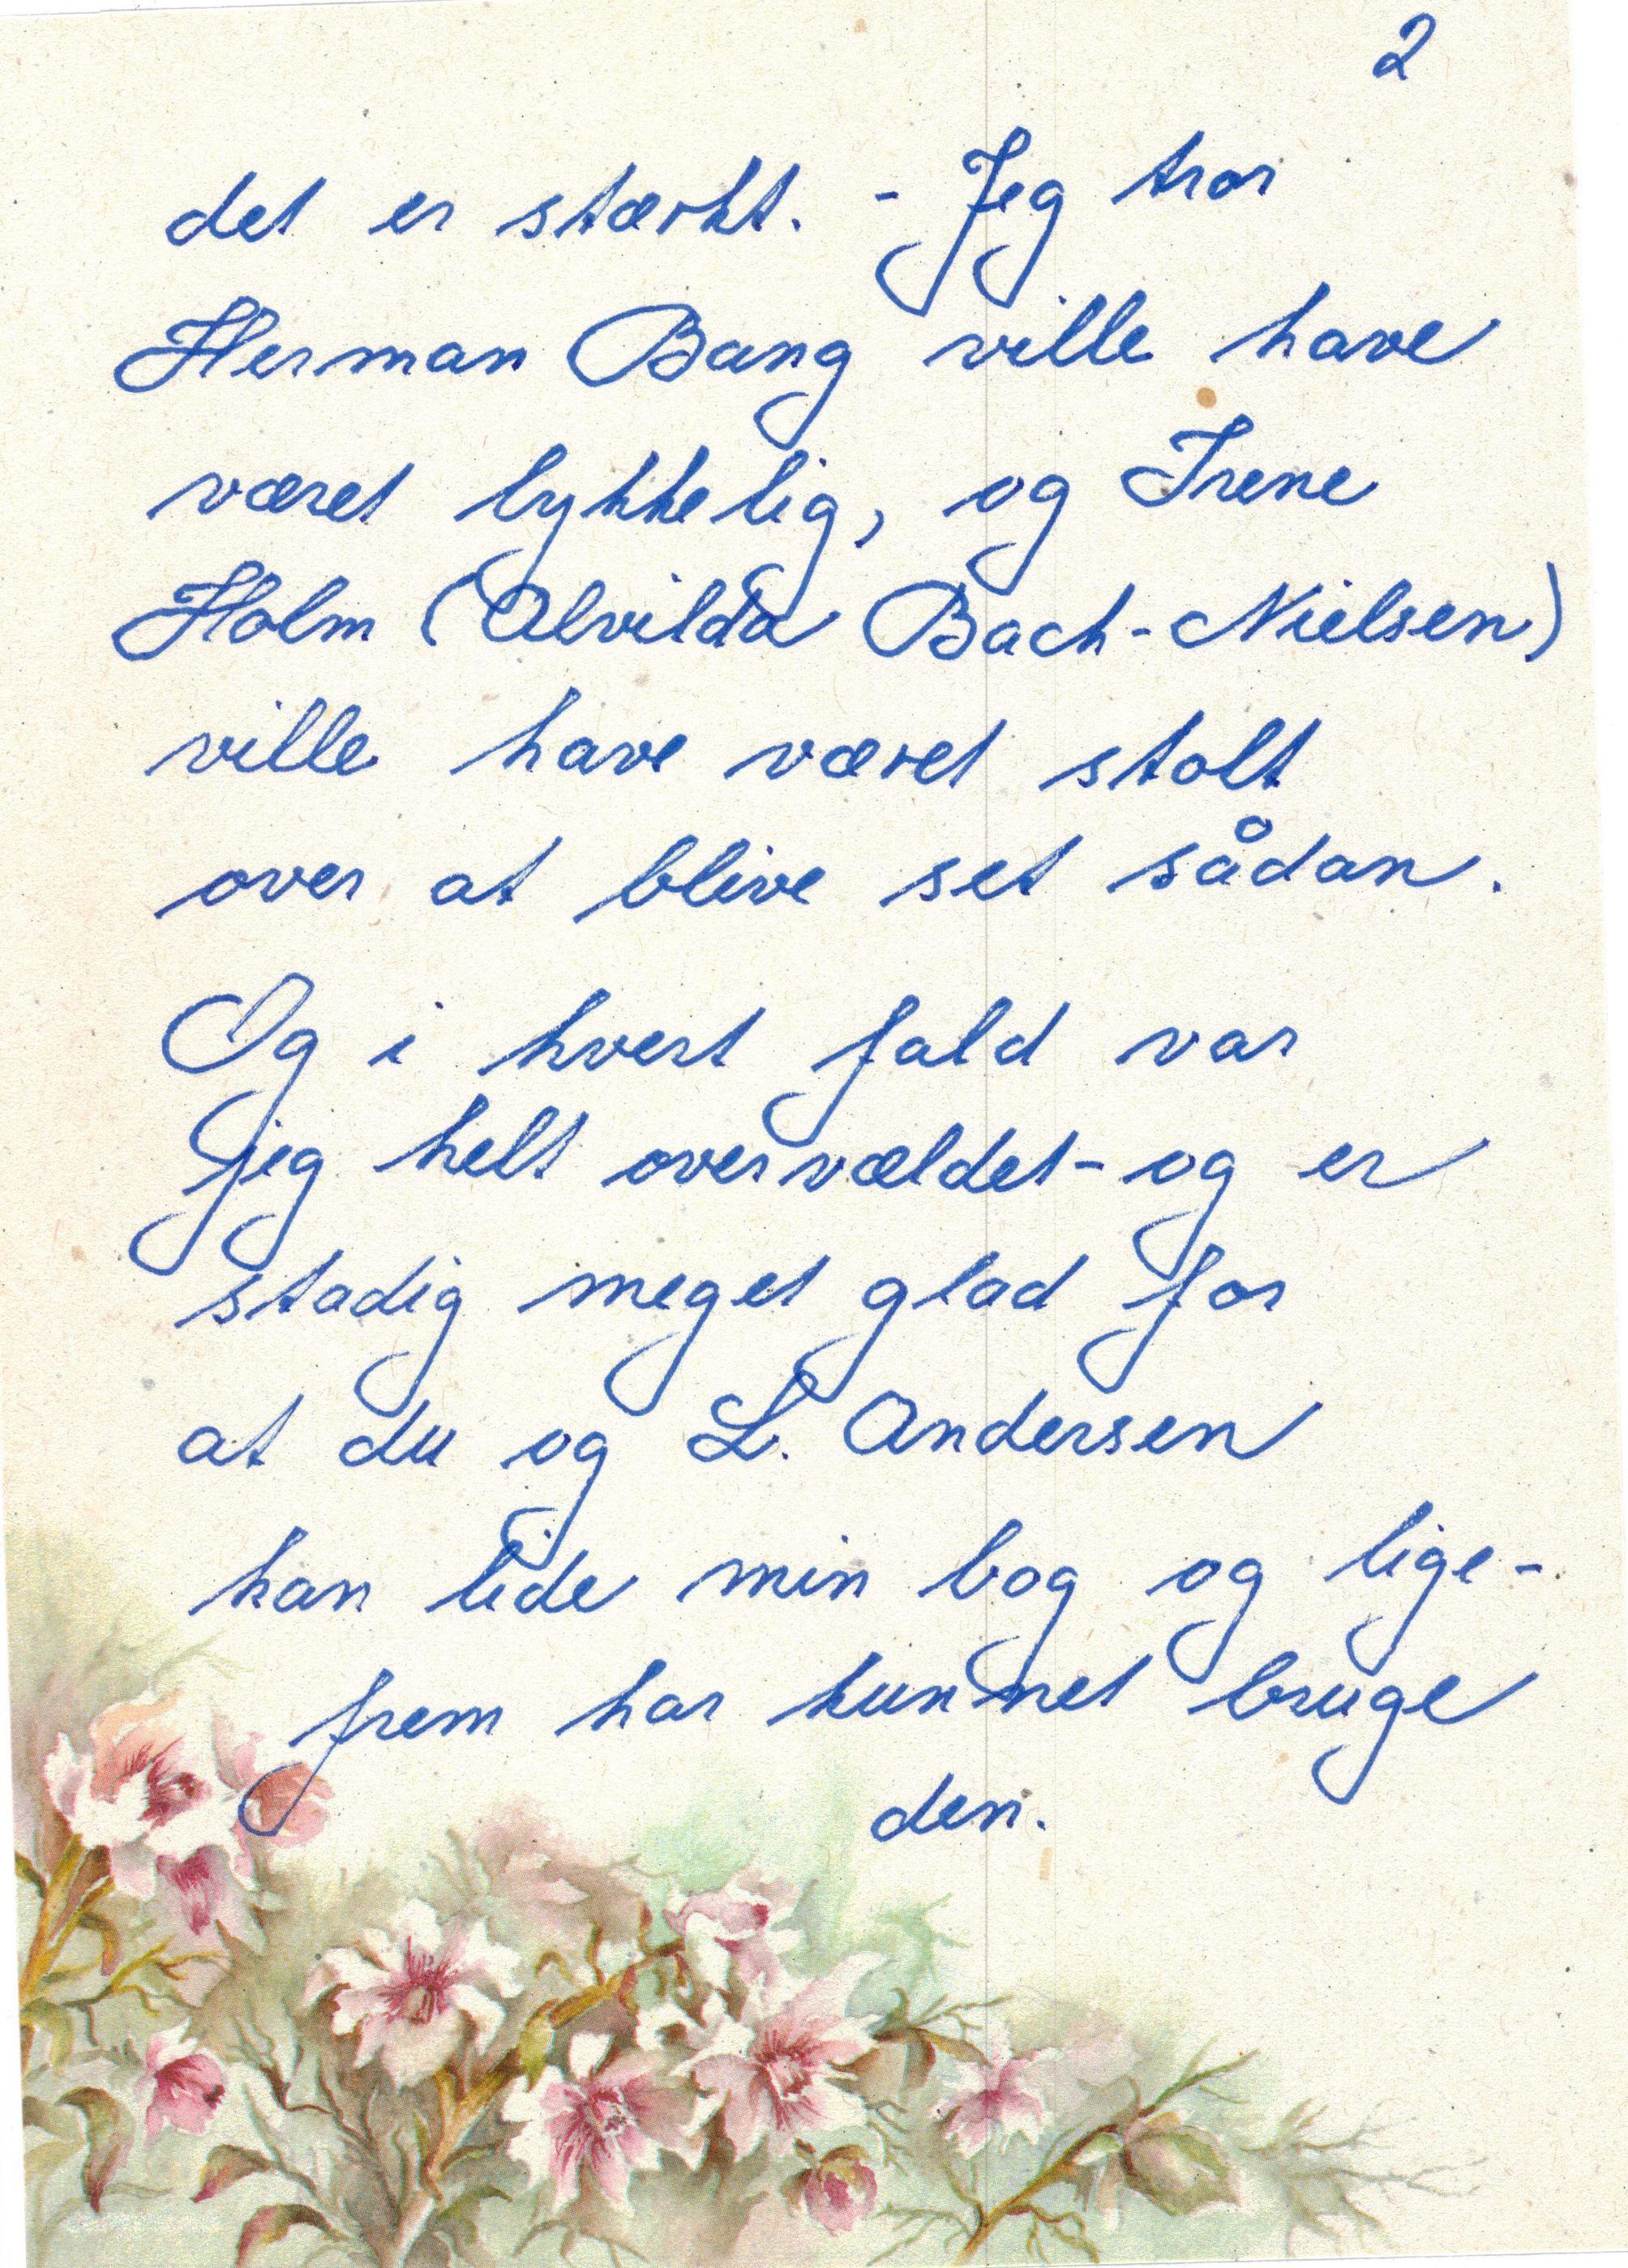 2
det er stærkt. - Jeg tror
Herman Bang ville have
været lykkelig, og Irene
Holm (Alvilda Bach-Nielsen)
ville have været stolt
over at blive set sådan.
Og i hvert fald var
jeg helt overvældet - og er
stadig meget glad for
at du og L. Andersen
kan lide min bog og lige-
frem har kunnet bruge
den.